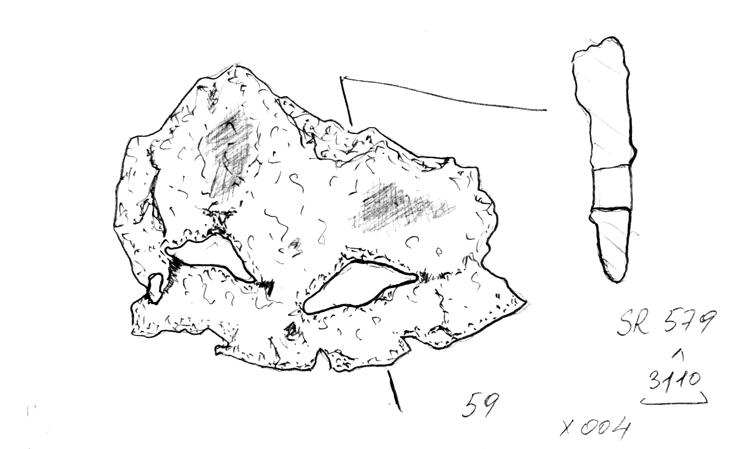 SR 579
^
3110
59
X 004